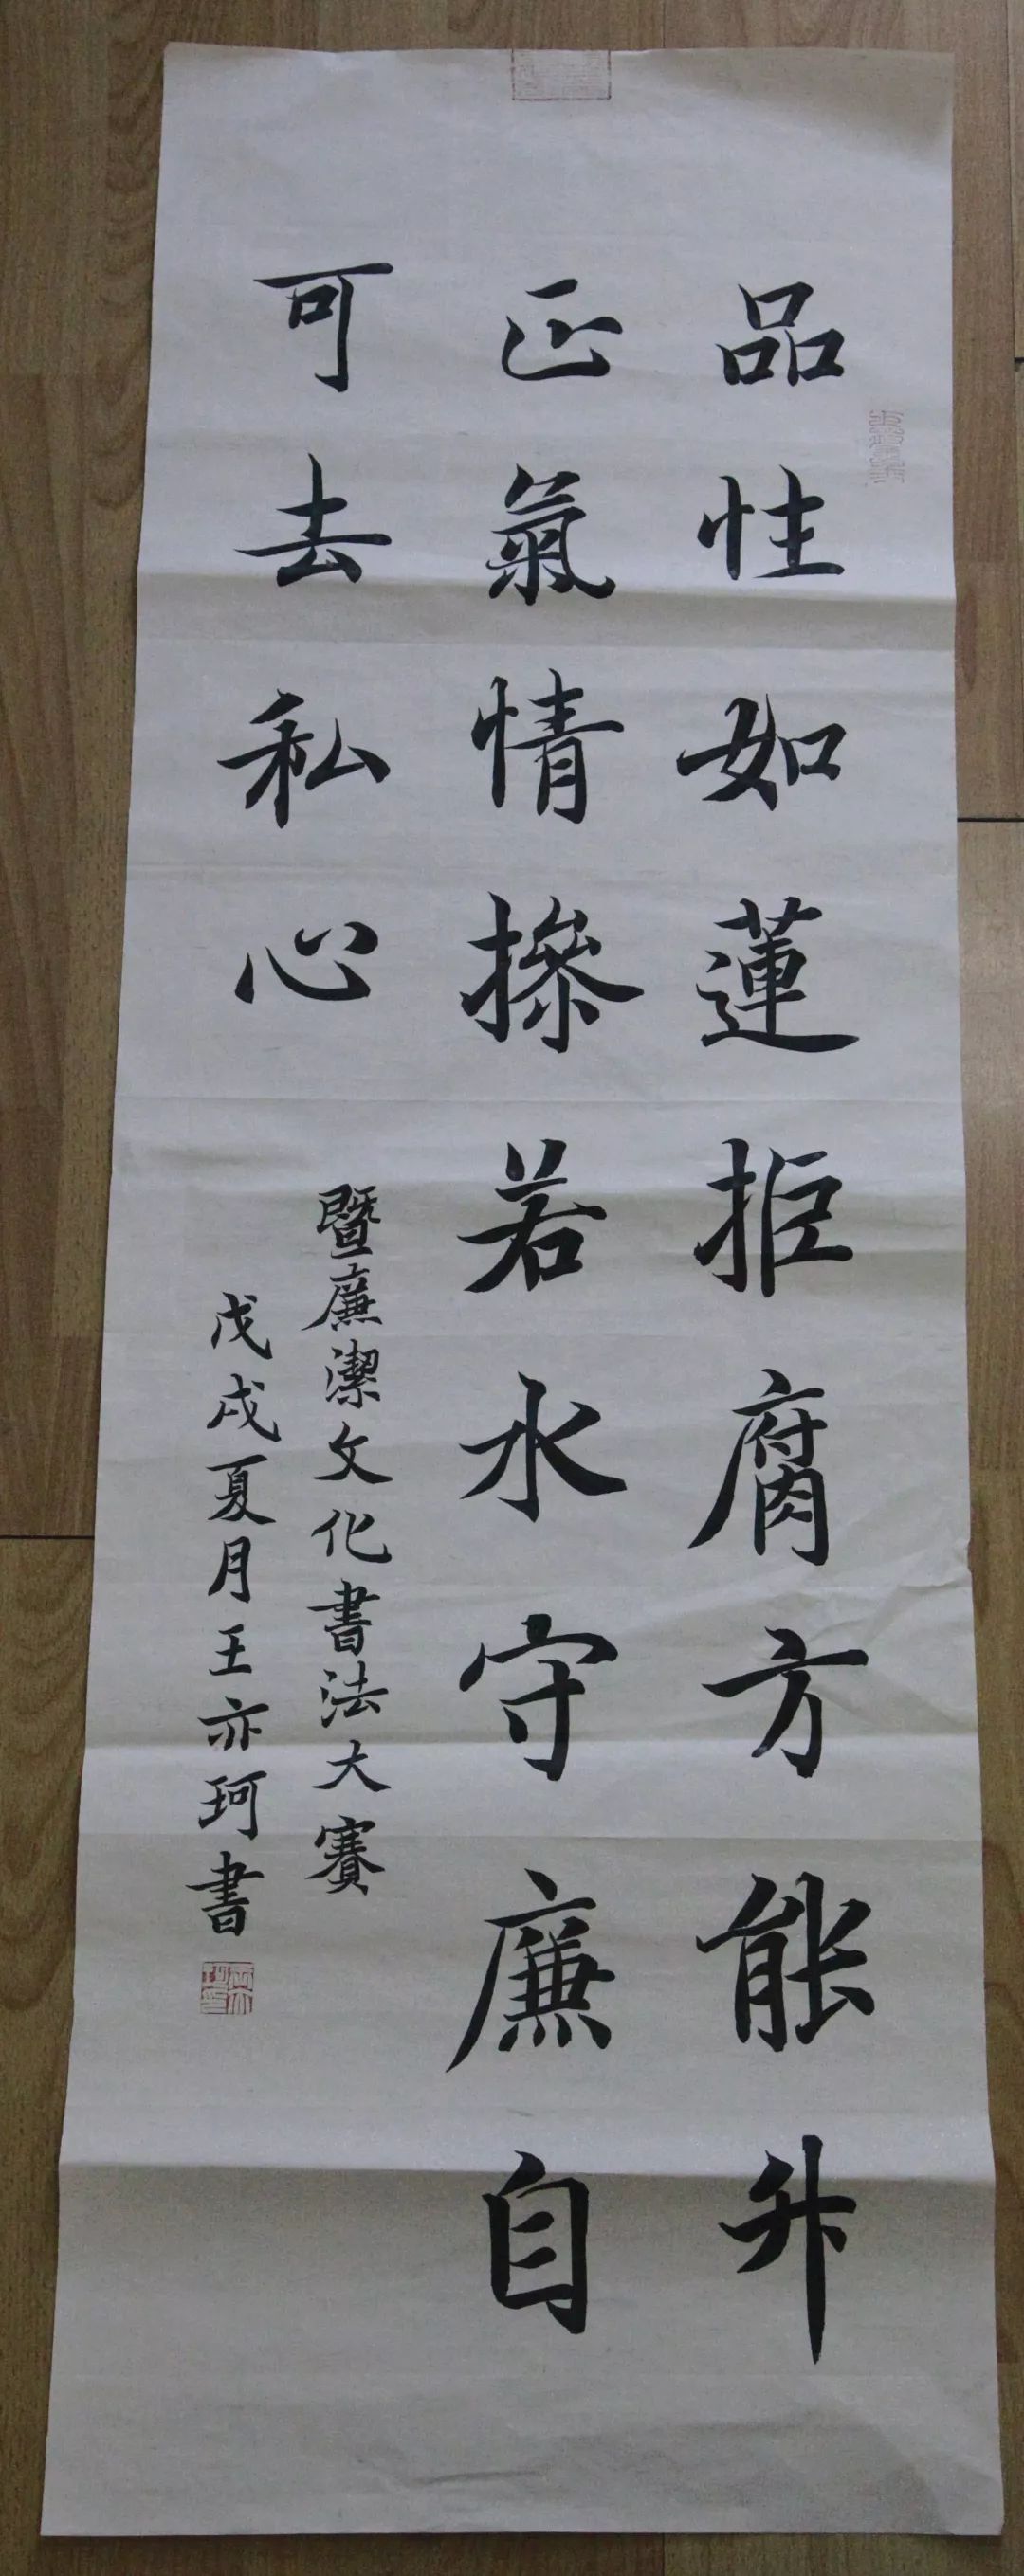 品性如蓮拒腐方能升
正氣情摻若水守廉自
可去私心
暨廉潔文化書法大賽
戊戌夏月王亦珂書